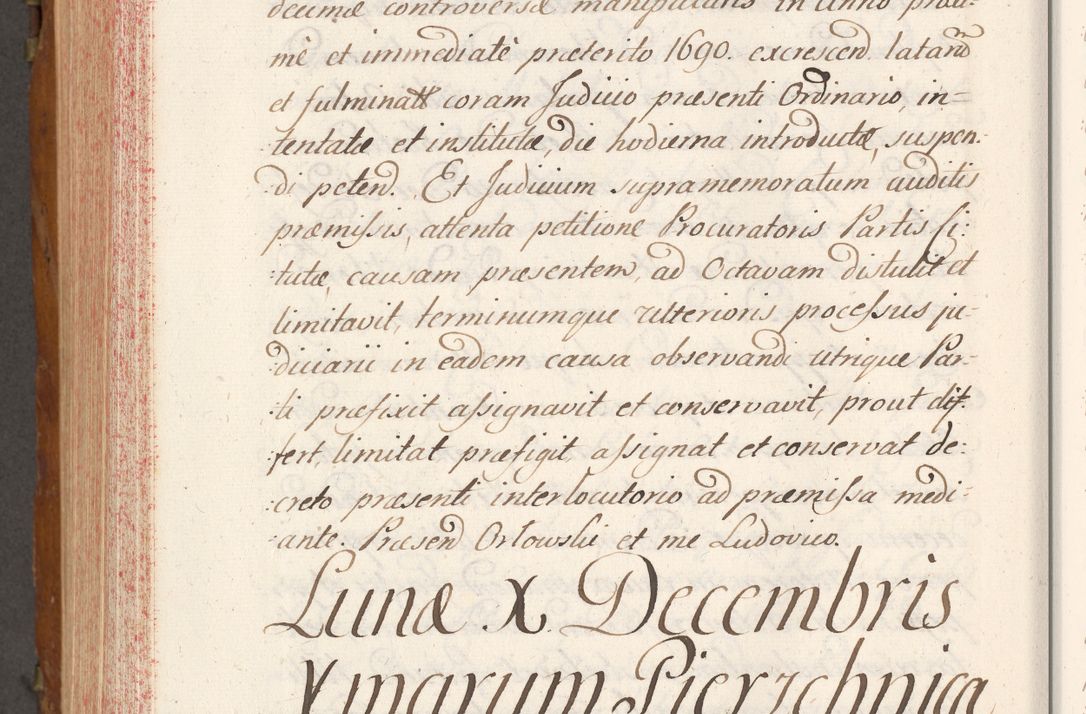 decimæ controversæ manipularis in Anno proxi-
mè et immediatè præterito 1690. excrescend. latand
et fulminatt coram Judicio præsenti Ordinario, in=
tentatæ et institutæ, die hodierna introductæ, suspen:
:di petend. Et Judicium supramemoratum auditis
præmissis, attenta petitione Procuratoris Partis Ci:
:tatæ, causam præsentem, ad Octavam distulit et
limitavit, terminumque ulterioris processus ju-
:diciarii in eadem causa observandi utrique Par-
:ti præfixit assignavit et conservavit, prout dif:
:fert, limitat præfigit, assignat et conservat de:
:creto præsenti interlocutorio ad præmissa medi:
:ante. Præsend Orlowski et me Ludovico.
Lunæ X Decembris
Vinarum Pierzchnica